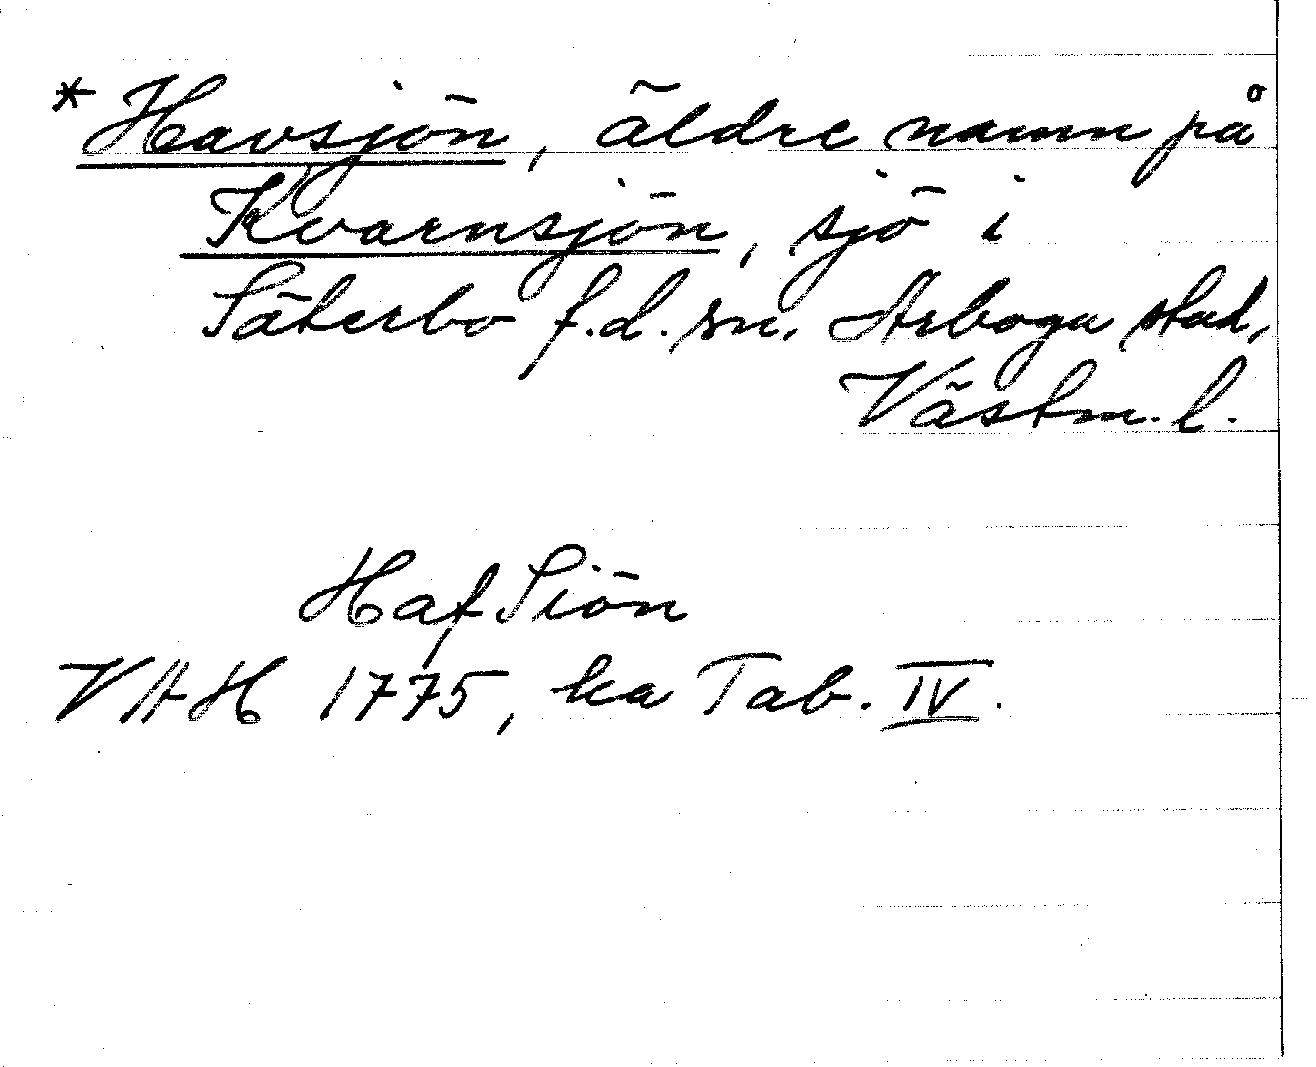 * Havsjön, äldre namn på
Kvarnsjön, sjö i
Säterbo f.d. sn. Arboga stad,
Västm. l.
Haf Siön
VAH 1775, ka Tab. IV.